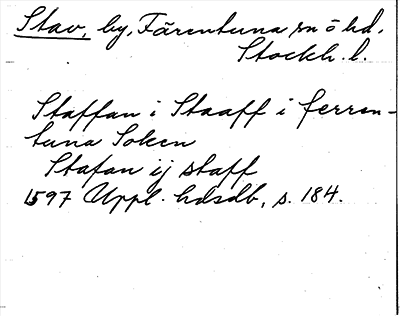 Stav, by, Färentuna sn o hd.
Stockh. l.
Staffan i Staaff i ferren-
tuna Soken
Stafan ij staff
1597 Uppl. hdsdb, s. 184.